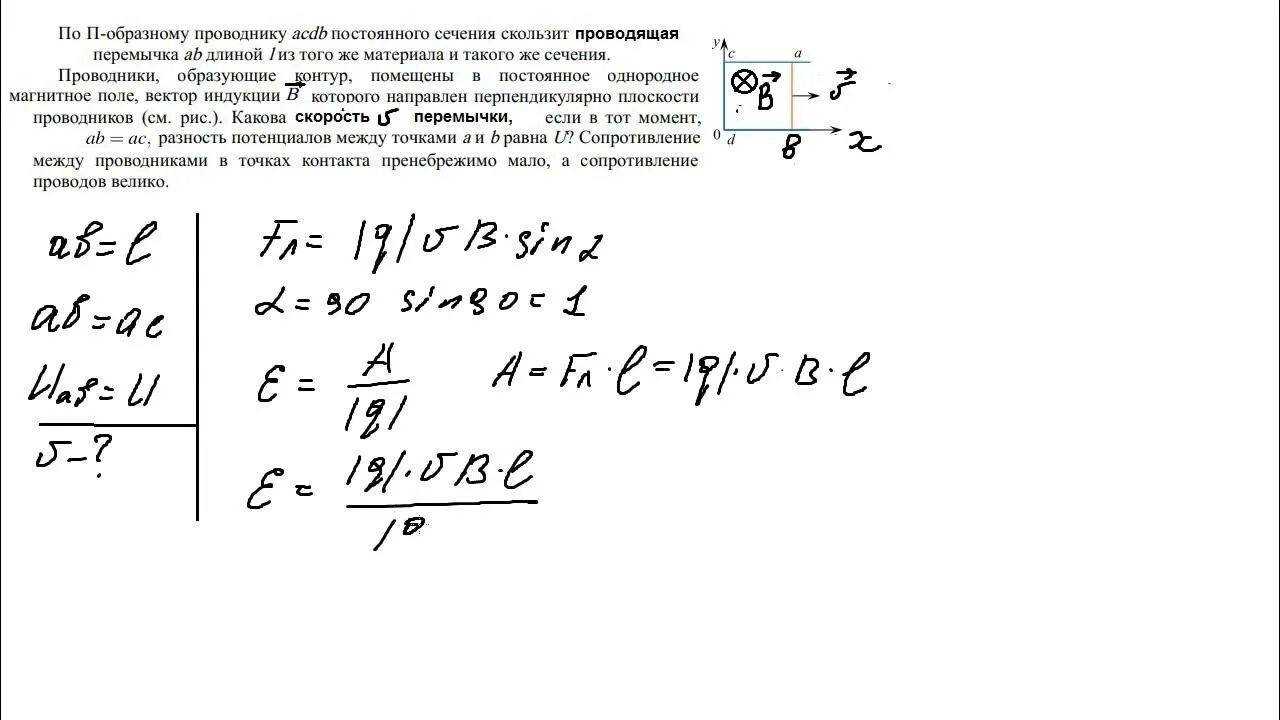 По П-образному проводнику acdb постоянного сечения скользит проводящая
перемычка ab длиной l из того же материала и такого же сечения.
Проводники, образующие контур, помещены в постоянное однородное
магнитное поле, вектор индукции B которого направлен перпендикулярно плоскости
проводников (см. рис.). Какова скорость υ перемычки, если в тот момент,
ab = ac, разность потенциалов между точками a и b равна U? Сопротивление
между проводниками в точках контакта пренебрежимо мало, а сопротивление
проводов велико.
y c a
B υ
0 d в x
aв = l
aв = ac
Uaв = U
υ - ?
Fл = |q| υ B · sin α
α = 90 sin 90 = 1
ε = A / |q| A = Fл · l = |q| · υ · B · l
ε = |q| · υ B · l / |q